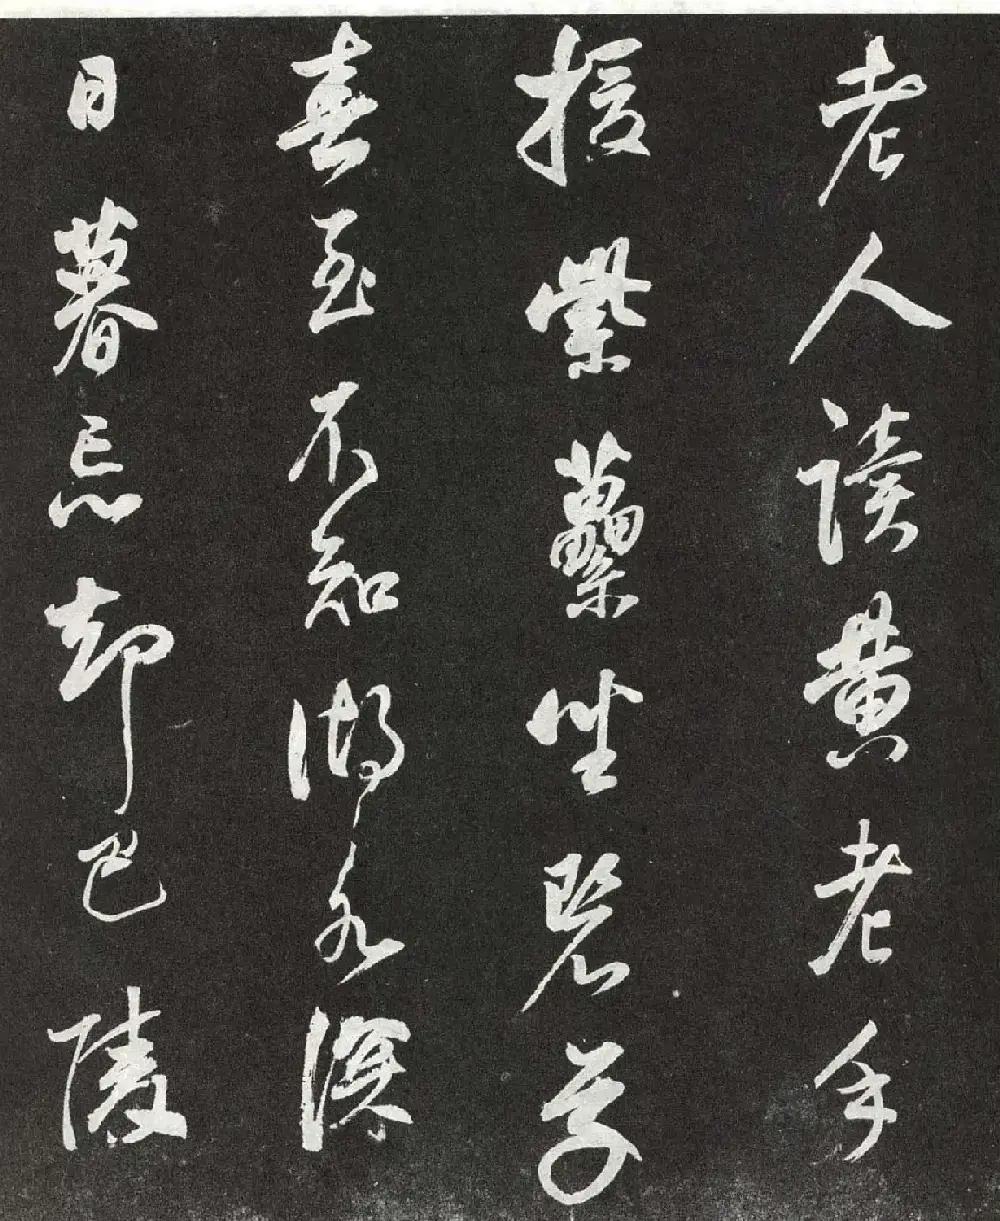 老人讀黃老手
援紫虆坐碧草
春至不知湖水深
日暮忘却巴陵